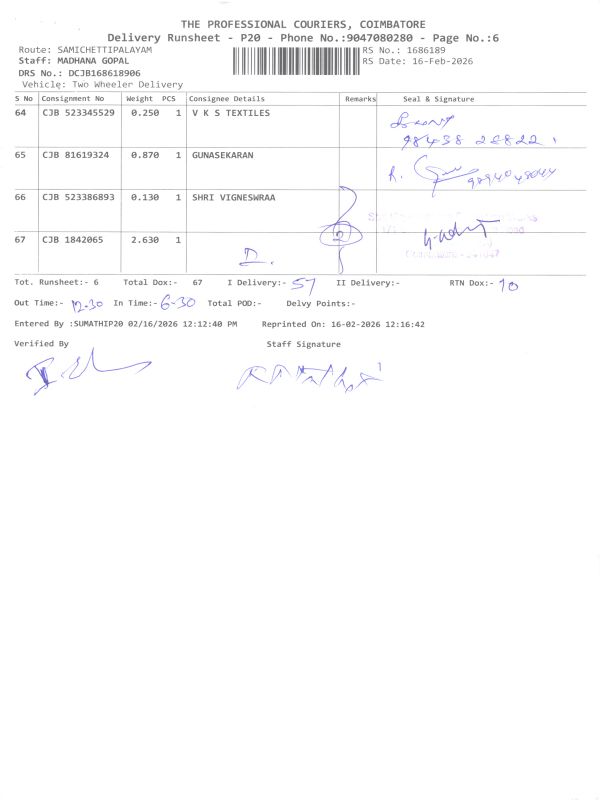 THE PROFESSIONAL COURIERS, COIMBATORE
Delivery Runsheet - P20 - Phone No.:9047080280 - Page No.:6
Route: SAMICHETTIPALAYAM RS No.: 1686189
Staff: MADHANA GOPAL RS Date: 16-Feb-2026
DRS No.: DCJB168618906
Vehicle: Two Wheeler Delivery
S No Consignment No Weight PCS Consignee Details Remarks Seal & Signature
64 CJB 523345529 0.250 1 V K S TEXTILES
98438 28822
65 CJB 81619324 0.870 1 GUNASEKARAN
R.
66 CJB 523386893 0.130 1 SHRI VIGNESWRAA
2
67 CJB 1842065 2.630 1
D.
Tot. Runsheet:- 6 Total Dox:- 67 I Delivery:- 57 II Delivery:- RTN Dox:- 10
Out Time:- 12.30 In Time:- 6-30 Total POD:- Delvy Points:-
Entered By :SUMATHIP20 02/16/2026 12:12:40 PM Reprinted On: 16-02-2026 12:16:42
Verified By Staff Signature